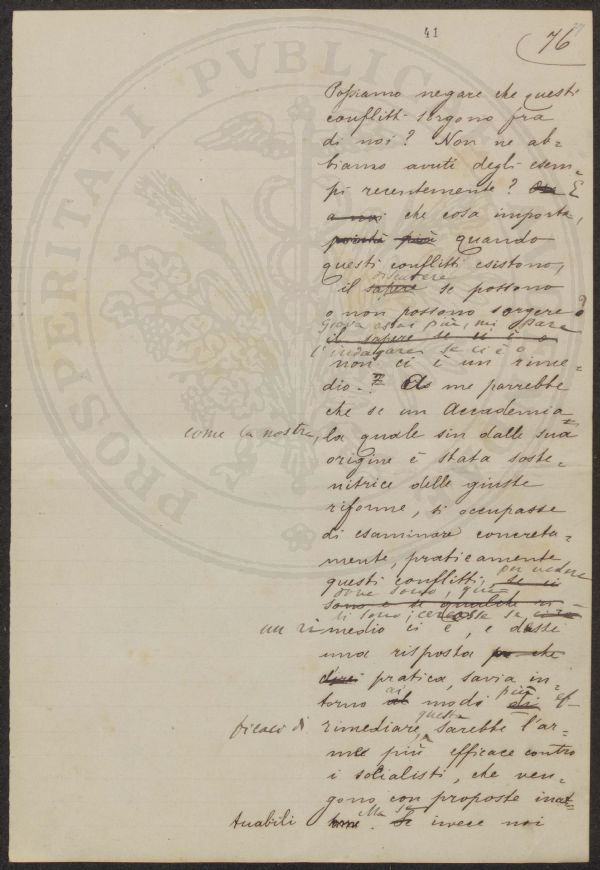 41
76
PROSPERITATI PVBLICAE
Possiamo negare che questi
conflitti sorgono fra
di noi? Non ne ab=
biamo avuti degli esem=
pi recentemente? E
a noi che cosa importa,
poichè più quando
questi conflitti esistono,
discutere
il sapere se possono
o non possono sorgere?
giova assai più, mi pare
il sapere se ci è o
l'indagare se ci è o
non ci è un rime=
dio. A me parrebbe
che se un Accademia
come la nostra, la quale sin dalle sua
origine è stata soste=
nitrice delle giuste
riforme, si occupasse
di esaminare concreta=
mente, praticamente
per vedere
questi conflitti, se ci
dove sono, que
sono e se qualche ri
li sono; cercasse se
un rimedio ci è, e desse
una risposta che
pratica, savia in
ai più ef=
torno al modi di
questa
ficaci di rimediare, sarebbe l'ar=
me più efficace contro
i socialisti, che ven=
gono con proposte inat=
ella se
tuabili. Se invece noi